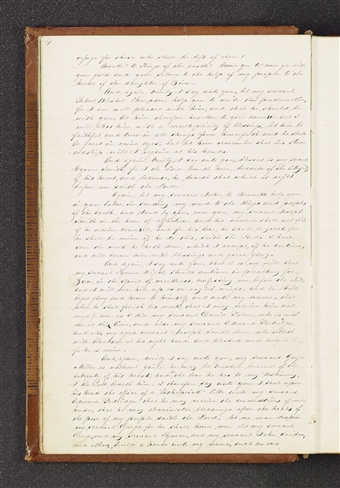 refuge for those who shall be left of them?
Awake! O Kings of the earth! Come ye, O come ye with
your gold and your silver, to the help of my people, to the
house of the daughter of Zion.
And again verily I say unto you, let my servant
Robert B. Thompson help you to write this proclamation,
for I am well pleased with him, and that he should be
with you; let him therefore hearken to your counsel and I
will bless him with a multiplicity of blessings, let him be
faithful and true in all things from henceforth and he shall
be great in mine eyes; but let him remember that his stew-
ardship will I require at his hands.
And again, verily I say unto you, blessed is my servant
Hyrum Smith, for I the Lord loveth him, because of the integrity
of his heart, and because he loveth that which is right
before me saith the Lord.
Again, let my servant John C. Bennett, help you
in your labor, in sending my word to the Kings and people
of the earth, and stand by you, even you my servant Joseph
Smith in the hour of affliction, and his reward shall not fail
if he receive counsel; and for his love, he shall be great, for
he shall be mine if he do this, saith the Lord. I have
seen the work he hath done, which I accept, if he continue,
and will crown him with blessings and great glory.
And again I say unto you, that it is my will that
my servant Lyman Wight, should continue in preaching for
Zion, in the spirit of meekness, confessing me before the world,
and I will bear him up as on eagles wings, and he shall
beget glory and honor to himself, and unto my name, that
when he shall finish his work, that I may receive him unto
myself, even as I did my servant David Patten, who is with
me at this time, and also my servant Edward Partridge,
and also my aged servant Joseph Smith Sen. who sitteth
with Abraham, at his right hand, and blessed and holy is he,
for he is mine.
And again, verily I say unto you, my servant George
Miller is without guile, he may be trusted because of the
integrity of his heart; and the love he has to my testimony,
I the Lord loveth him: I therefore, say unto you, I seal upon
his head the office of a Bishoprick like unto my servant
Edward Partridge, that he may receive the consecrations of mine
house, that he may administer blessings upon the heads of
the poor of my people, saith the Lord, let no man despise
my servant George, for he shall honor me. Let my servant
George, and my servant Lyman, and my servant John Snider,
and others, build a house unto my name, such an one